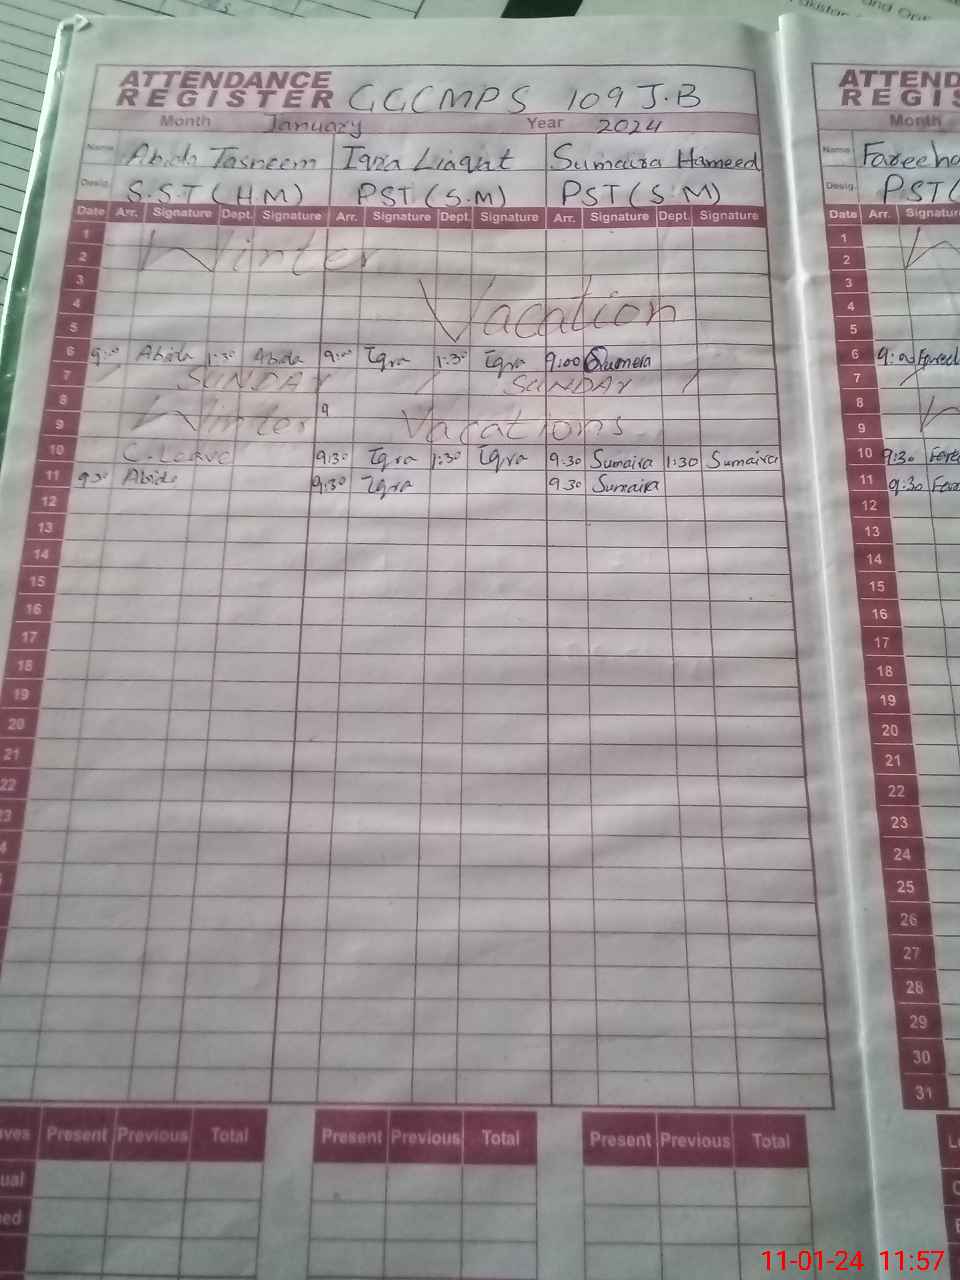 ATTENDANCE
REGISTER GGCMPS 109 J.B
Month January Year 2024
Name Abida Tasneem Iqra Liaqut Sumaira Hameed
Desig. S.S.T (H M) PST (S.M) PST (S.M)
Date Arr. Signature Dept. Signature Arr. Signature Dept. Signature Arr. Signature Dept. Signature
1
2 Winter
3
4 Vacation
5
6 9:00 Abida 1:30 Abida 9:00 Iqra 1:30 Iqra 9:00 Sumera
7 SUNDAY SUNDAY
8
9 Winter Vacations
10 C. Leave 9:30 Iqra 1:30 Iqra 9.30 Sumaira 1:30 Sumaira
11 9:30 Abida 9:30 Iqra 9.30 Sumaira
12
13
14
15
16
17
18
19
20
21
22
Present Previous Total Present Previous Total Present Previous Total
ATTEND
REGIS
Month
Name Fareeha
Desig. PST (
Date Arr. Signature
1
2
3
4
5
6 9:00 Fareed
7
8
9
10 9:30 Fare
11 9:30 Fare
12
13
14
15
16
17
18
19
20
21
22
23
24
25
26
27
28
29
30
31
11-01-24 11:57